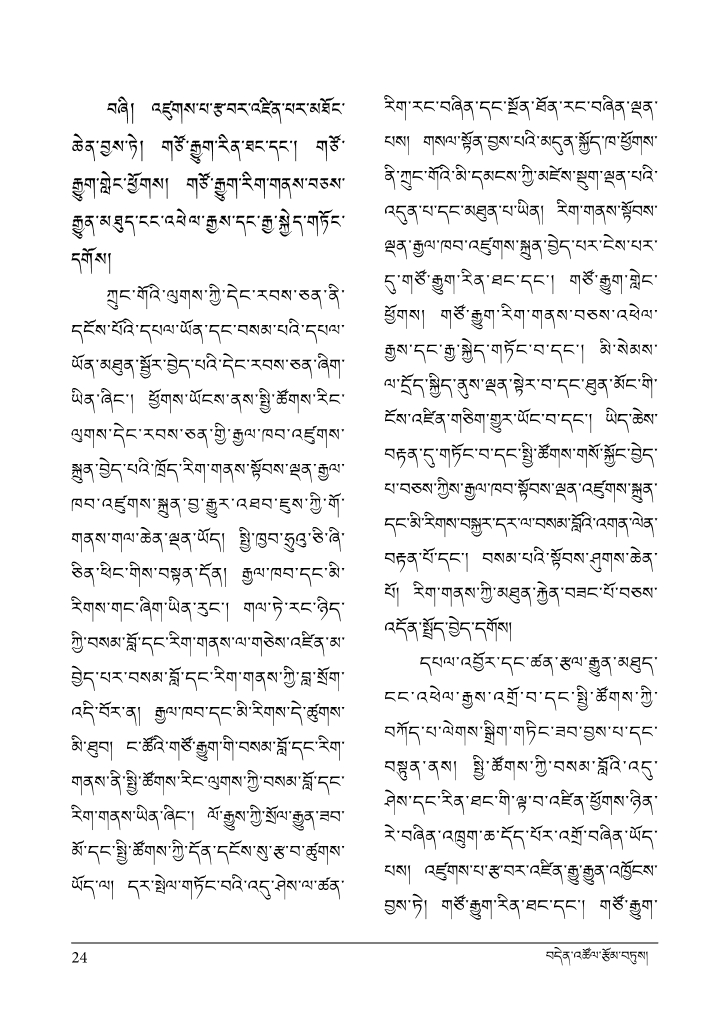 བཞི། འཛུགས་པ་རྩ་བར་འཛིན་པར་མཐོང་
ཆེན་བྱས་ཏེ། གཙོ་རྒྱུག་རིན་ཐང་དང་། གཙོ་
རྒྱུག་གླེང་ཕྱོགས། གཙོ་རྒྱུག་རིག་གནས་བཅས་
རྒྱུན་མཐུད་ངང་འཕེལ་རྒྱས་དང་རྒྱ་སྐྱེད་གཏོང་
དགོས།
ཀྲུང་གོའི་ལུགས་ཀྱི་དེང་རབས་ཅན་ནི་
དངོས་པོའི་དཔལ་ཡོན་དང་བསམ་པའི་དཔལ་
ཡོན་མཐུན་སྦྱོར་བྱེད་པའི་དེང་རབས་ཅན་ཞིག་
ཡིན་ཞིང་། ཕྱོགས་ཡོངས་ནས་སྤྱི་ཚོགས་རིང་
ལུགས་དེང་རབས་ཅན་གྱི་རྒྱལ་ཁབ་འཛུགས་
སྐྲུན་བྱེད་པའི་ཁྲོད་རིག་གནས་སྟོབས་ལྡན་རྒྱལ་
ཁབ་འཛུགས་སྐྲུན་བྱ་རྒྱུར་འཐབ་ཇུས་ཀྱི་གོ་
གནས་གལ་ཆེན་ལྡན་ཡོད། སྤྱི་ཁྱབ་ཧྲུའུ་ཅི་ཞི་
ཅིན་ཕིང་གིས་བསྟན་དོན། རྒྱལ་ཁབ་དང་མི་
རིགས་གང་ཞིག་ཡིན་རུང་། གལ་ཏེ་རང་ཉིད་
ཀྱི་བསམ་བློ་དང་རིག་གནས་ལ་གཅེས་འཛིན་མ་
བྱེད་པར་བསམ་བློ་དང་རིག་གནས་ཀྱི་བླ་སྲོག་
འདི་བོར་ན། རྒྱལ་ཁབ་དང་མི་རིགས་དེ་ཚུགས་
མི་ཐུབ། ང་ཚོའི་གཙོ་རྒྱུག་གི་བསམ་བློ་དང་རིག་
གནས་ནི་སྤྱི་ཚོགས་རིང་ལུགས་ཀྱི་བསམ་བློ་དང་
རིག་གནས་ཡིན་ཞིང་། ལོ་རྒྱུས་ཀྱི་སྲོལ་རྒྱུན་ཟབ་
མོ་དང་སྤྱི་ཚོགས་ཀྱི་དོན་དངོས་སུ་རྩ་བ་ཚུགས་
ཡོད་ལ། དར་སྤེལ་གཏོང་བའི་འདུ་ཤེས་ལ་ཚན་
རིག་རང་བཞིན་དང་སྔོན་ཐོན་རང་བཞིན་ལྡན་
པས། གསལ་སྟོན་བྱས་པའི་མདུན་སྐྱོད་ཁ་ཕྱོགས་
ནི་ཀྲུང་གོའི་མི་དམངས་ཀྱི་མཛེས་སྡུག་ལྡན་པའི་
འདུན་པ་དང་མཐུན་པ་ཡིན། རིག་གནས་སྟོབས་
ལྡན་རྒྱལ་ཁབ་འཛུགས་སྐྲུན་བྱེད་པར་ངེས་པར་
དུ་གཙོ་རྒྱུག་རིན་ཐང་དང་། གཙོ་རྒྱུག་གླེང་
ཕྱོགས། གཙོ་རྒྱུག་རིག་གནས་བཅས་འཕེལ་
རྒྱས་དང་རྒྱ་སྐྱེད་གཏོང་བ་དང་། མི་སེམས་
ལ་དྲོད་སྐྱིད་ནུས་ལྡན་སྟེར་བ་དང་ཐུན་མོང་གི་
ངོས་འཛིན་གཅིག་གྱུར་ཡོང་བ་དང་། ཡིད་ཆེས་
བརྟན་དུ་གཏོང་བ་དང་སྤྱི་ཚོགས་གསོ་སྐྱོང་བྱེད་
པ་བཅས་ཀྱིས་རྒྱལ་ཁབ་སྟོབས་ལྡན་འཛུགས་སྐྲུན་
དང་མི་རིགས་བསྐྱར་དར་ལ་བསམ་བློའི་འགན་ལེན་
བརྟན་པོ་དང་། བསམ་པའི་སྟོབས་ཤུགས་ཆེན་
པོ། རིག་གནས་ཀྱི་མཐུན་རྐྱེན་བཟང་པོ་བཅས་
འདོན་སྤྲོད་བྱེད་དགོས།
དཔལ་འབྱོར་དང་ཚན་རྩལ་རྒྱུན་མཐུད་
ངང་འཕེལ་རྒྱས་འགྲོ་བ་དང་སྤྱི་ཚོགས་ཀྱི་
བཀོད་པ་ལེགས་སྒྲིག་གཏིང་ཟབ་བྱས་པ་དང་
བསྟུན་ནས། སྤྱི་ཚོགས་ཀྱི་བསམ་བློའི་འདུ་
ཤེས་དང་རིན་ཐང་གི་ལྟ་བ་འཛིན་ཕྱོགས་ཉིན་
རེ་བཞིན་འཁྲུག་ཆ་དོད་པོར་འགྲོ་བཞིན་ཡོད་
པས། འཛུགས་པ་རྩ་བར་འཛིན་རྒྱུ་རྒྱུན་འཁྱོངས་
བྱས་ཏེ། གཙོ་རྒྱུག་རིན་ཐང་དང་། གཙོ་རྒྱུག་
24
བདེན་འཚོལ་རྩོམ་བཏུས།